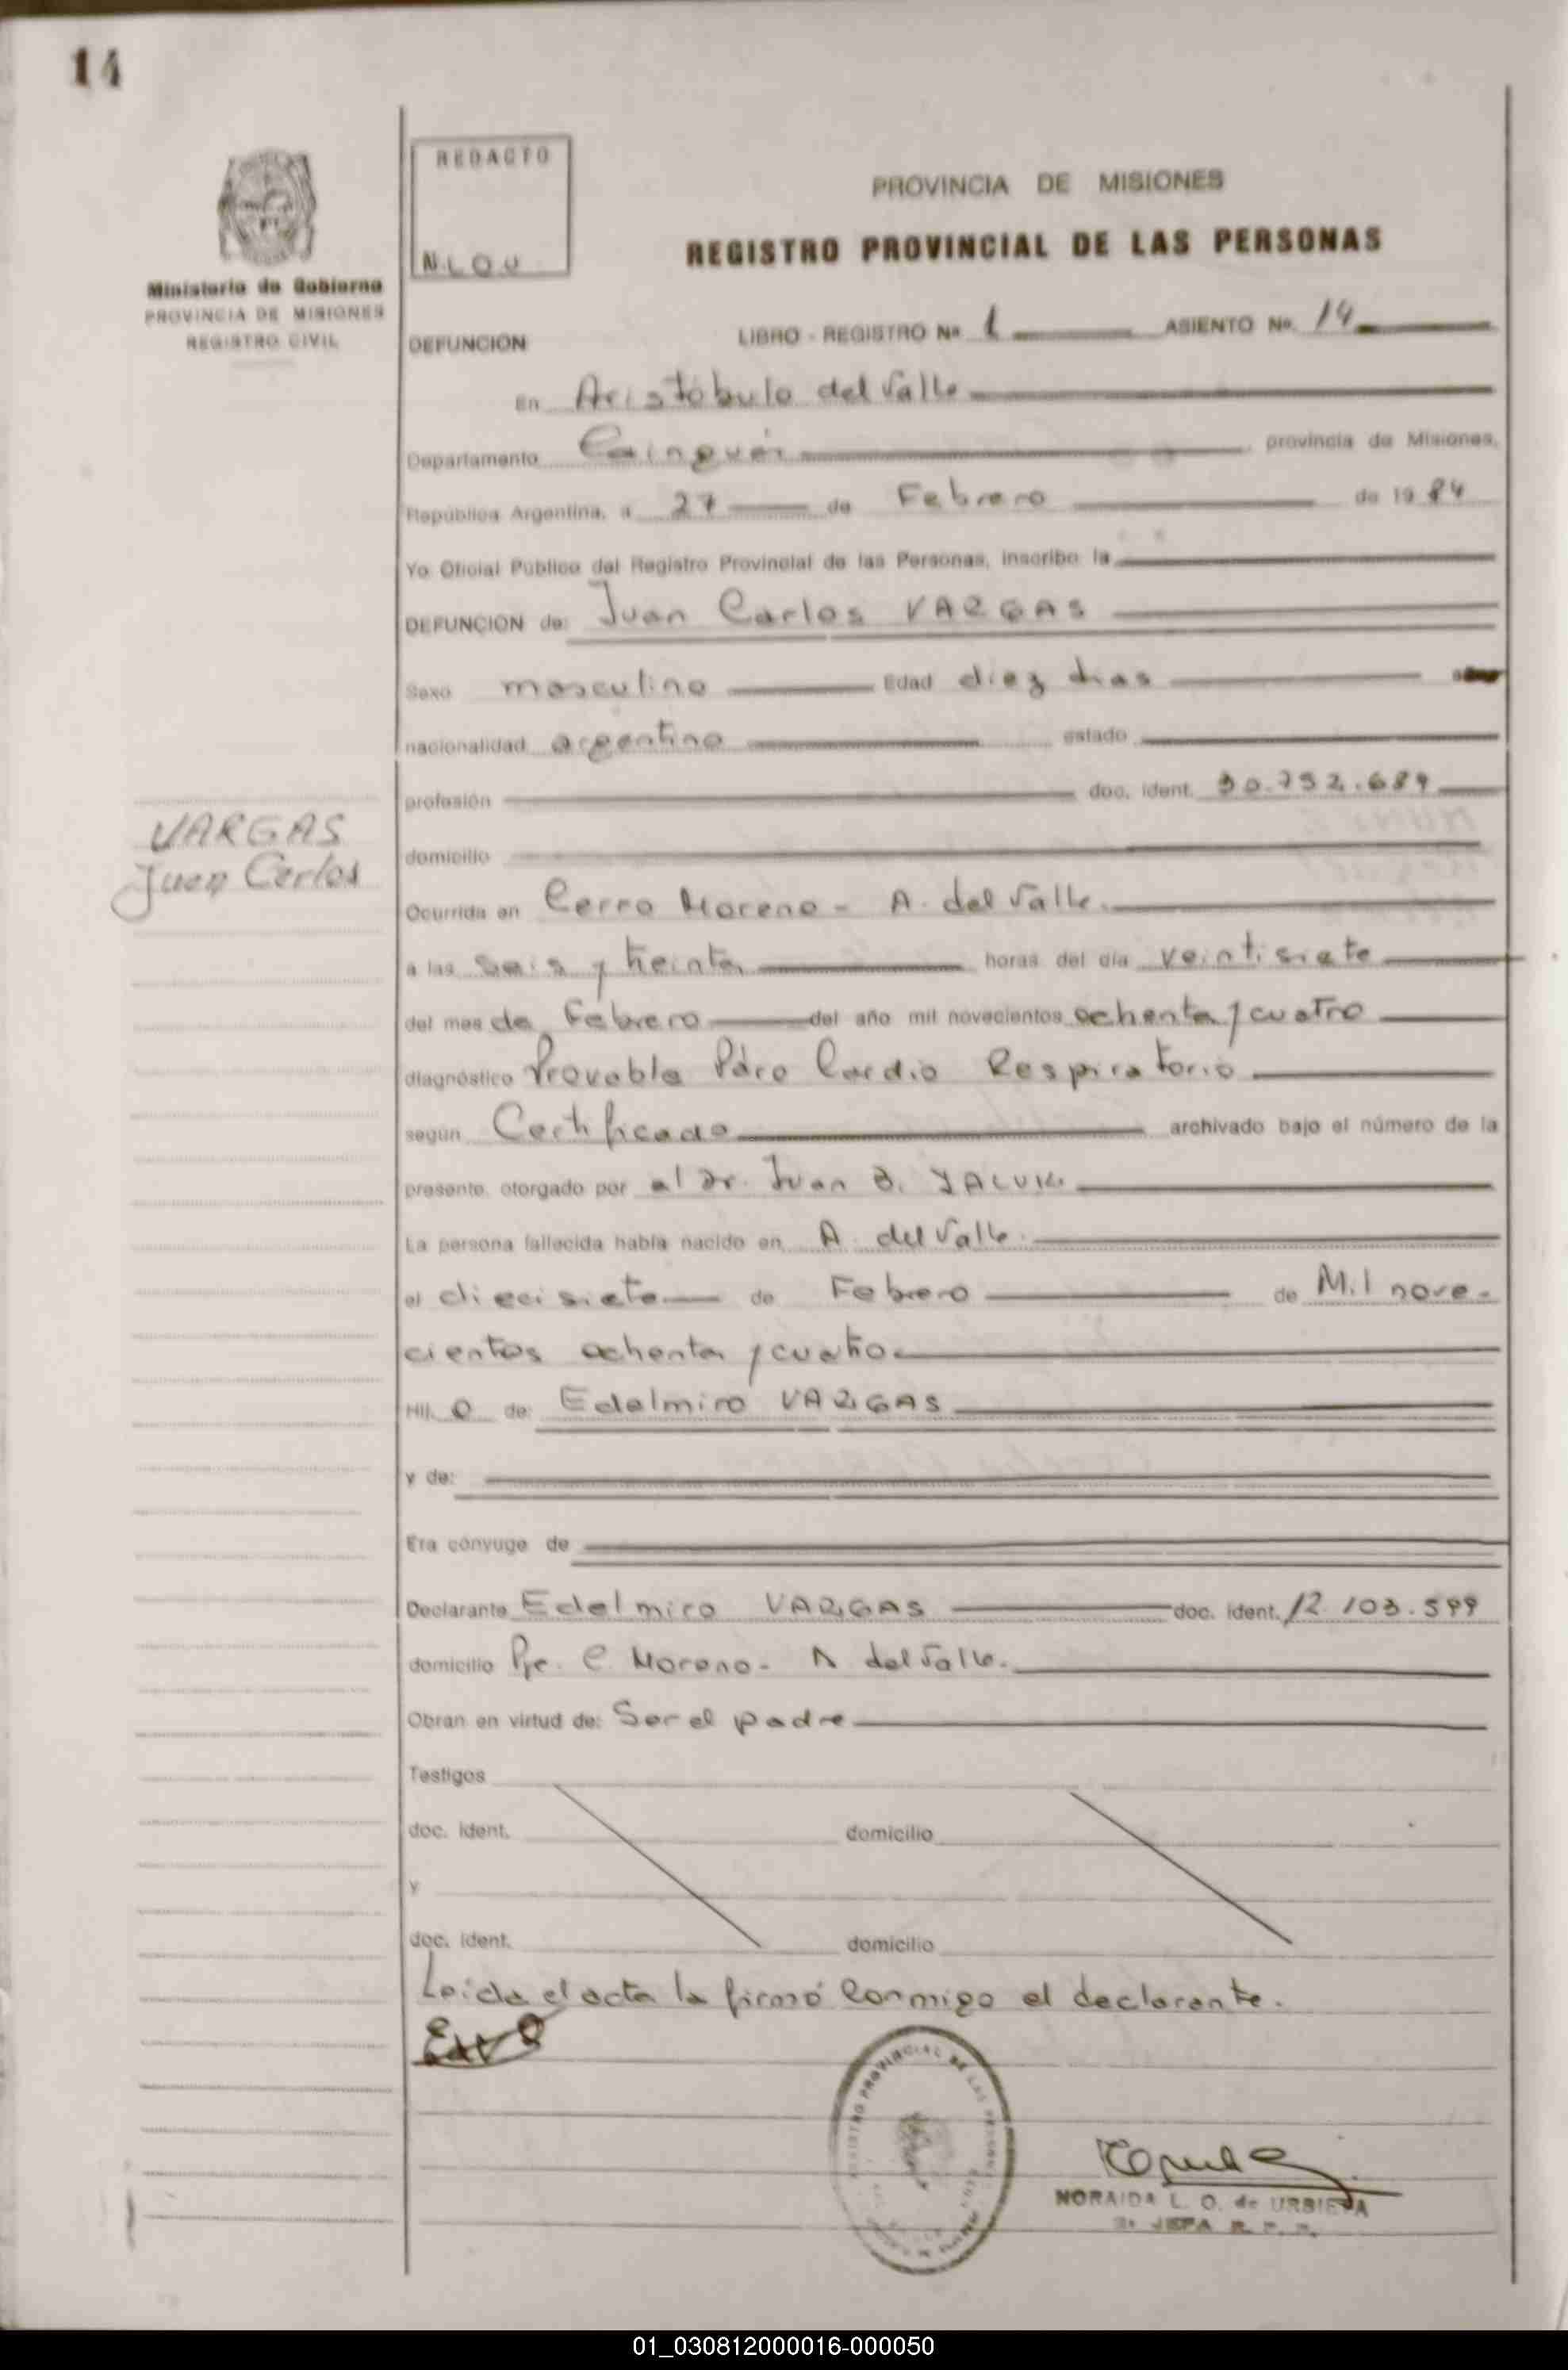 14
REDACTO
N.L.O.U
Ministerio de Gobierno
PROVINCIA DE MISIONES
REGISTRO CIVIL
PROVINCIA DE MISIONES
REGISTRO PROVINCIAL DE LAS PERSONAS
DEFUNCION LIBRO - REGISTRO Nº 1 ASIENTO Nº 14
En Aristóbulo del Valle
Departamento Cainguás provincia de Misiones,
República Argentina, a 27 de Febrero de 1984
Yo Oficial Público del Registro Provincial de las Personas, inscribo la
DEFUNCION de: Juan Carlos VARGAS
Sexo masculino Edad diez dias
nacionalidad argentino estado
profesión doc. ident. 30.752.689
domicilio
VARGAS
Juan Carlos
Ocurrida en Cerro Moreno - A. del Valle.
a las Seis y treinta horas del día veintisiete
del mes de Febrero del año mil novecientos ochenta y cuatro
diagnóstico Provable Paro Cardio Respiratorio
según Certificado archivado bajo el número de la
presente, otorgado por el Dr. Juan B.
La persona fallecida había nacido en A. del Valle.
el diecisiete de Febrero de Mil nove-
cientos ochenta y cuatro.
Hij o de: Edelmiro VARGAS
y de:
Era cónyuge de
Declarante Edelmiro VARGAS doc. ident. 12.103.599
domicilio Pje. C. Moreno - A del Valle.
Obran en virtud de: Ser el padre
Testigos
doc. ident. domicilio
y
doc. ident. domicilio
Leida el acta la firmó conmigo el declarante.
REGISTRO PROVINCIAL DE LAS PERSONAS
NORAIDA L. O. de URBIETA
2ª JEFA R. P. P.
01_030812000016-000050